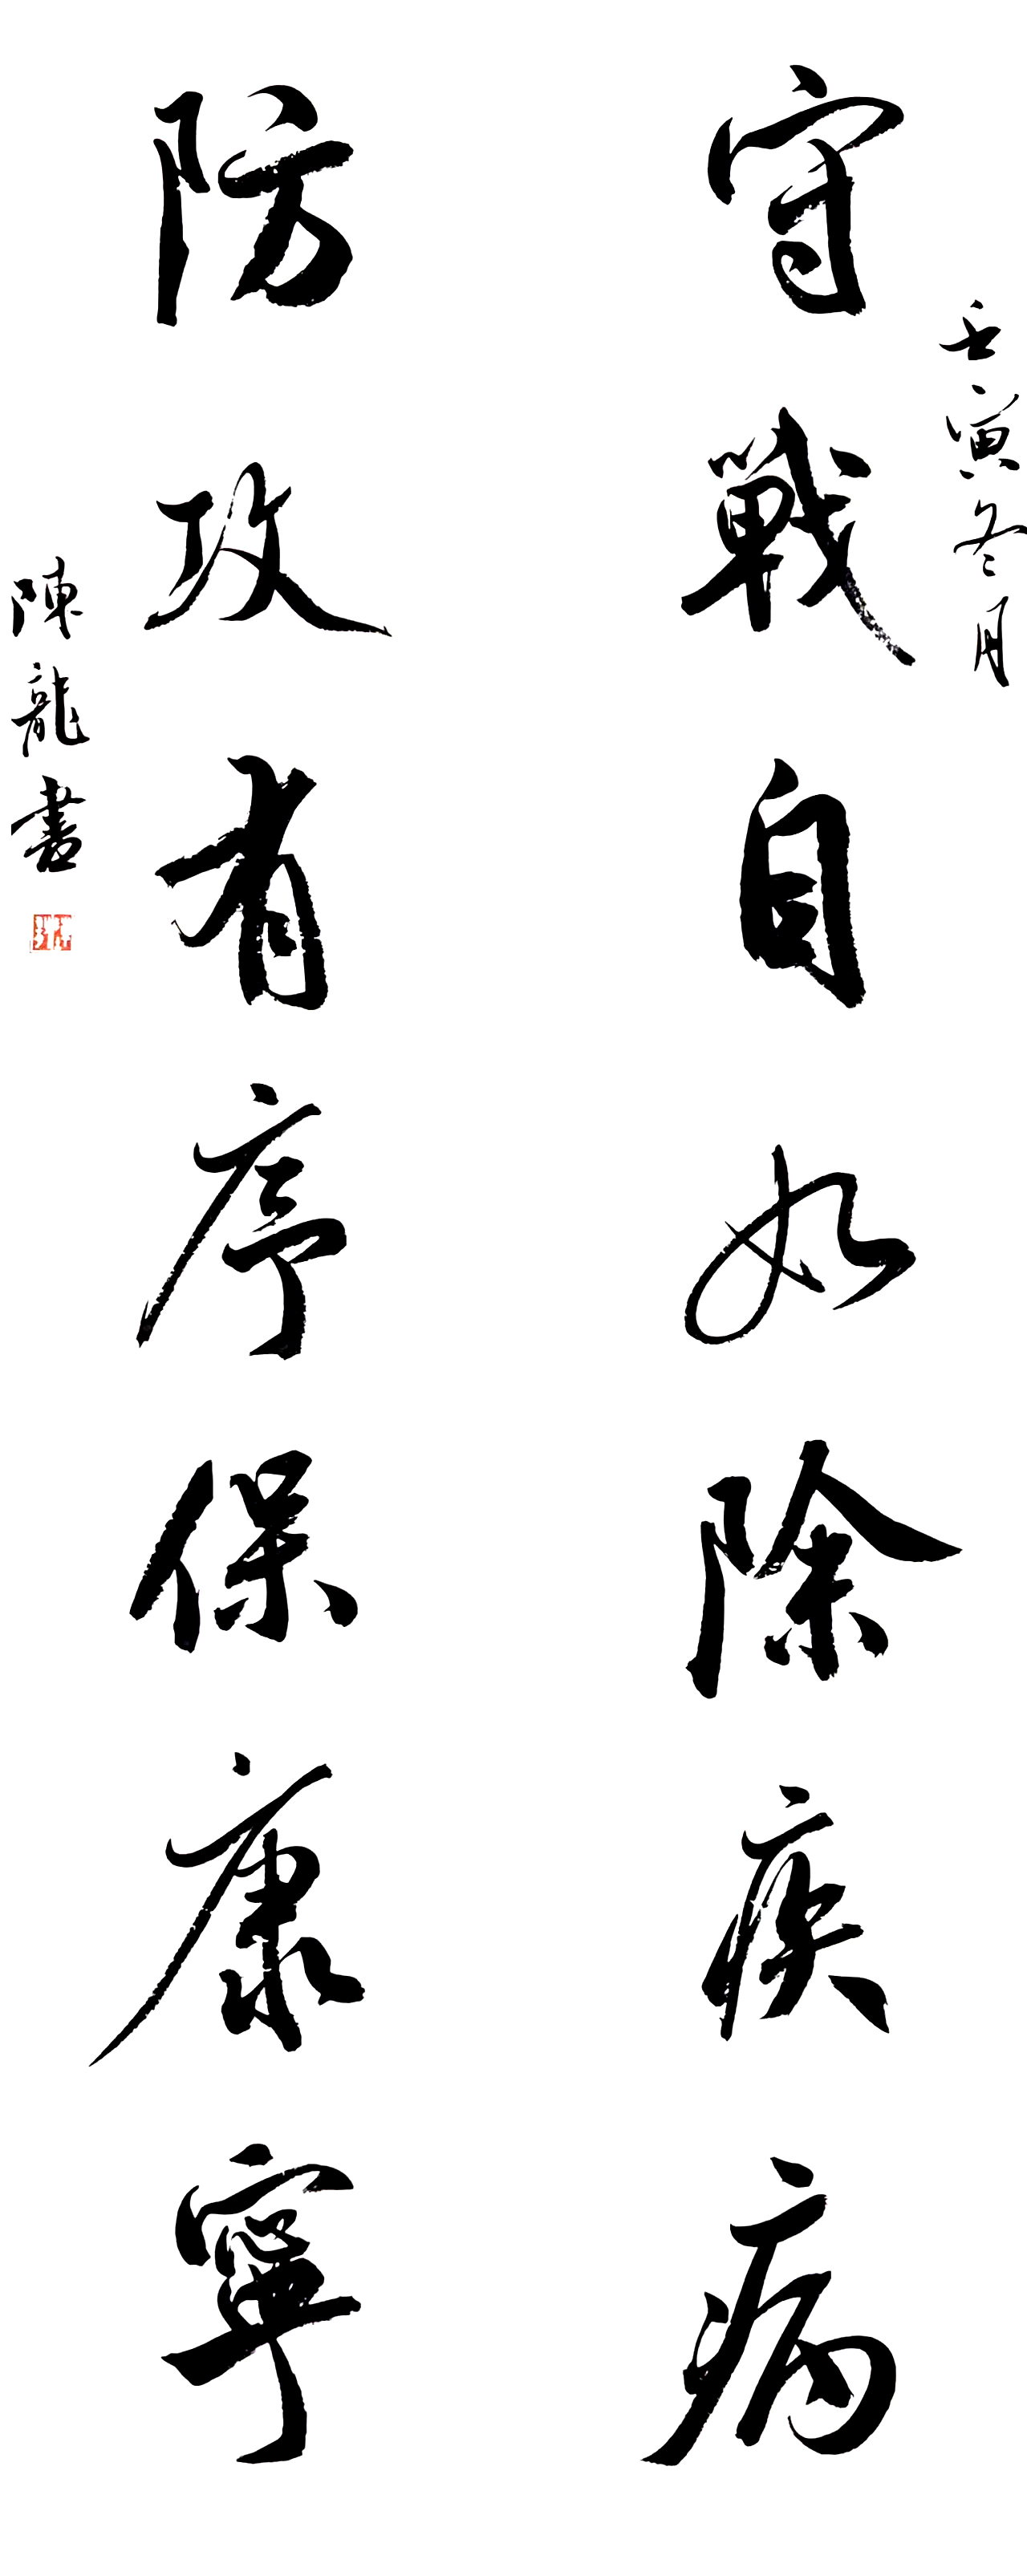 壬寅冬月
守戰自如除疾病
防攻有序保康寧
陳龍書